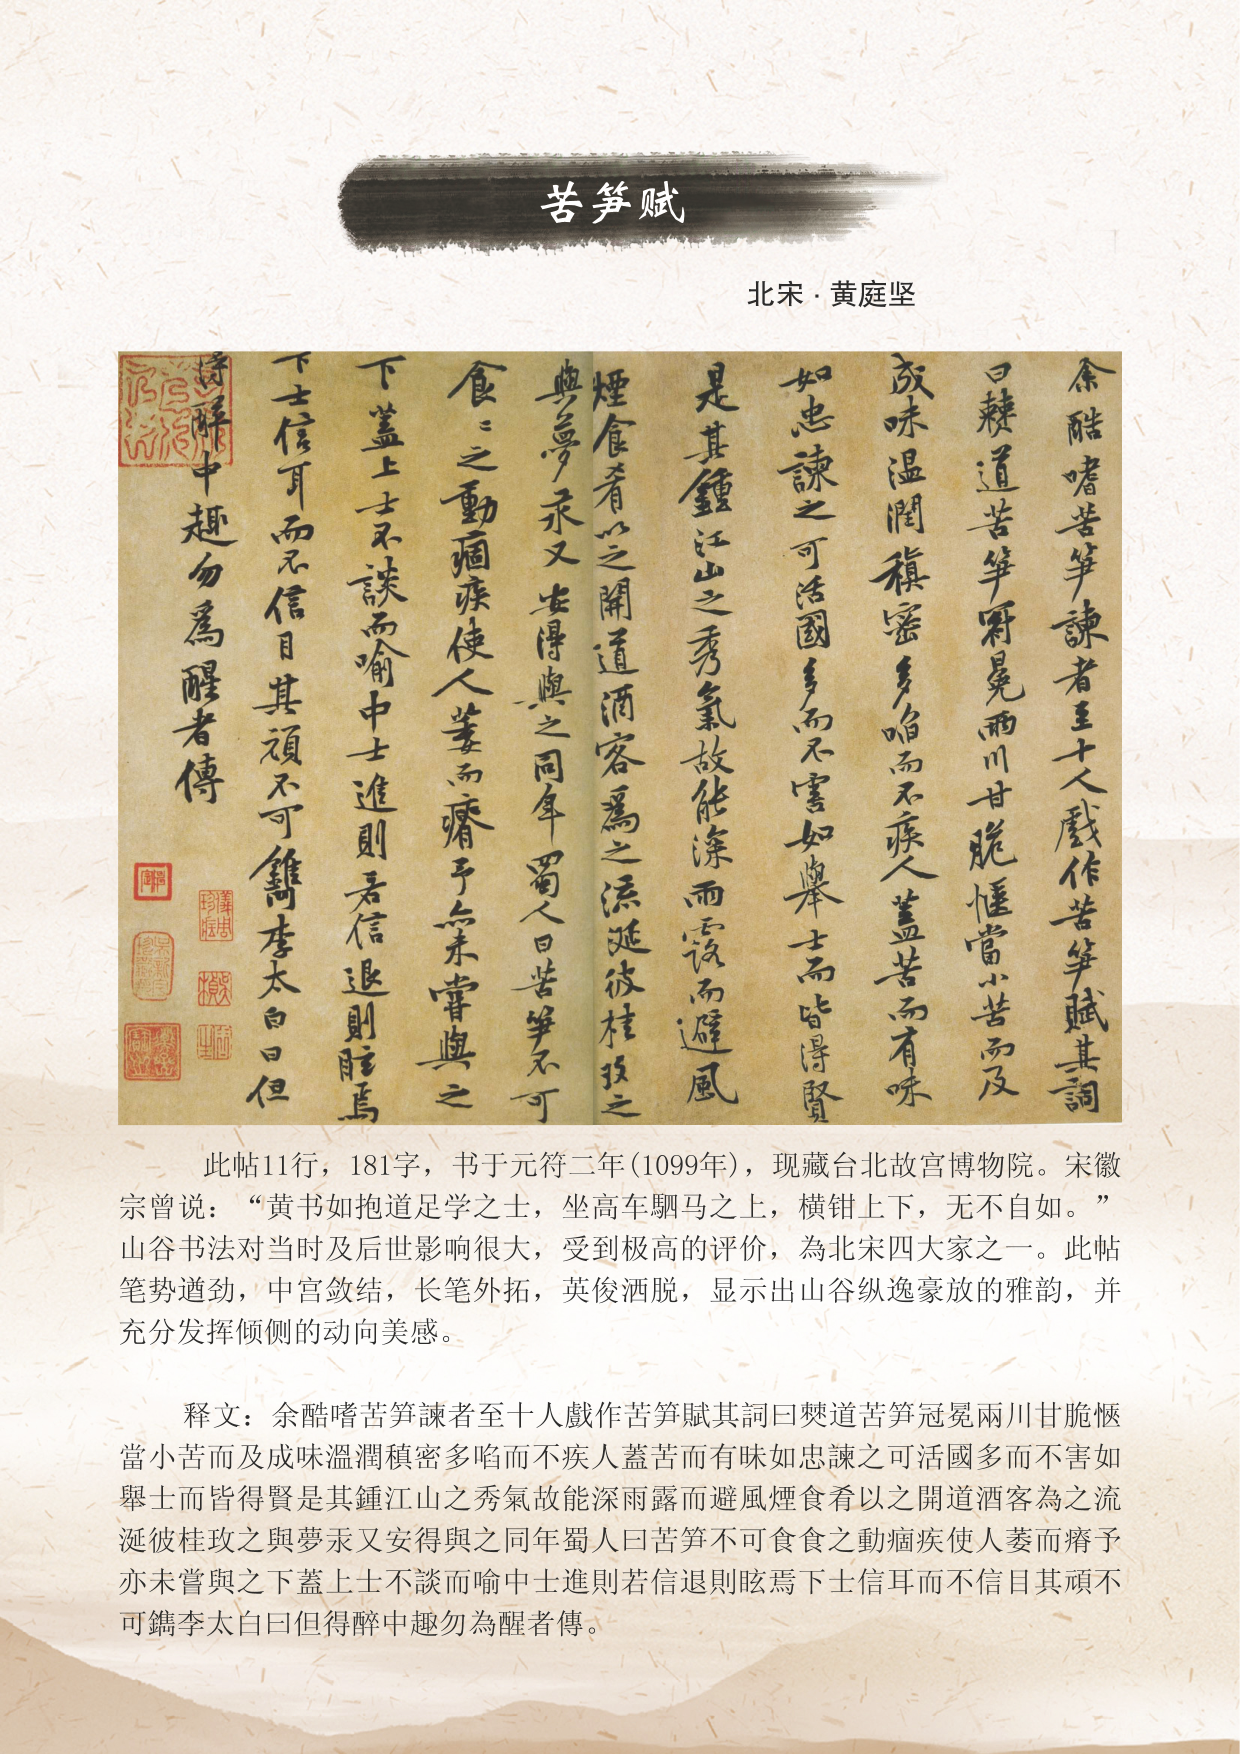 苦笋赋
北宋·黄庭坚
余酷嗜苦笋諫者至十人戲作苦笋賦其詞
曰僰道苦笋冠冕兩川甘脆愜當小苦而及
成味温潤稹密多啗而不疾人蓋苦而有味
如忠諫之可活國多而不害如舉士而皆得賢
是其鍾江山之秀氣故能深雨露而避風
煙食肴以之開道酒客為之流涎彼桂玫之
與夢汞又安得與之同年蜀人曰苦笋不可
食〻之動痼疾使人萎而瘠予亦未嘗與之
下蓋上士不談而喻中士進則若信退則眩焉
下士信耳而不信目其頑不可鐫李太白曰但
得醉中趣勿為醒者傳
此帖11行，181字，书于元符二年(1099年)，现藏台北故宫博物院。宋徽
宗曾说：“黄书如抱道足学之士，坐高车駟马之上，横钳上下，无不自如。”
山谷书法对当时及后世影响很大，受到极高的评价，為北宋四大家之一。此帖
笔势遒劲，中宫敛结，长笔外拓，英俊洒脱，显示出山谷纵逸豪放的雅韵，并
充分发挥倾侧的动向美感。
释文：余酷嗜苦笋諫者至十人戲作苦笋賦其詞曰僰道苦笋冠冕兩川甘脆愜
當小苦而及成味溫潤稹密多啗而不疾人蓋苦而有味如忠諫之可活國多而不害如
舉士而皆得賢是其鍾江山之秀氣故能深雨露而避風煙食肴以之開道酒客為之流
涎彼桂玫之與夢汞又安得與之同年蜀人曰苦笋不可食食之動痼疾使人萎而瘠予
亦未嘗與之下蓋上士不談而喻中士進則若信退則眩焉下士信耳而不信目其頑不
可鐫李太白曰但得醉中趣勿為醒者傳。